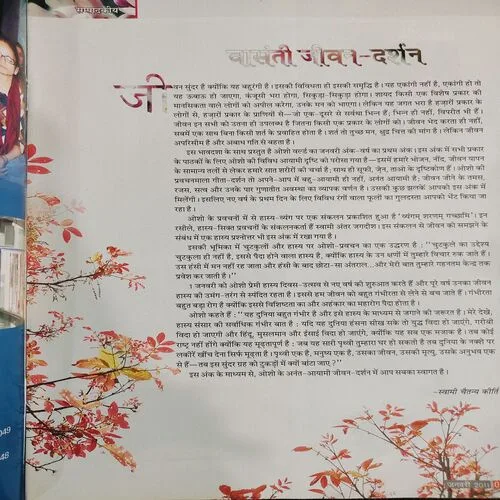 सम्पादकीय
वासंती जीवन-दर्शन
जीवन सुंदर है क्योंकि यह बहुरंगी है। इसकी विविधता ही इसकी समृद्धि है। यह एकांगी नहीं है, एकांगी हो तो
यह ऊबाऊ हो जाएगा, कंजूसी भरा होगा, सिकुड़ा-सिकुड़ा होगा। शायद किसी एक विशेष प्रकार की
मानसिकता वाले लोगों को अपील करेगा, उनके मन को भाएगा। लेकिन यह जगत भरा है हजारों प्रकार के
लोगों से, हजारों प्रकार के प्राणियों से—जो एक-दूसरे से सर्वथा भिन्न हैं; भिन्न ही नहीं, विपरीत भी हैं।
जीवन इन सभी को उतना ही उपलब्ध है जितना किसी एक प्रकार के लोगों को। जीवन भेद करता ही नहीं,
सबमें एक साथ बिना किसी शर्त के प्रवाहित होता है। शर्त तो तुच्छ मन, क्षुद्र चित्त की मांग है। लेकिन जीवन
अपरिसीम है और अबाध गति से बहता है।
इस भावदशा के साथ प्रस्तुत है ओशो वर्ल्ड का जनवरी अंक-वर्ष का प्रथम अंक। इस अंक में सभी प्रकार
के पाठकों के लिए ओशो की विविध आयामी दृष्टि को परोसा गया है—इसमें हमारे भोजन, नींद, जीवन यापन
के सामान्य तलों से लेकर हमारे सात शरीरों की चर्चा है; साथ ही सूफी, जेन, ताओ के दृष्टिकोण हैं। ओशो की
प्रवचनमाला गीता-दर्शन तो अपने-आप में बहु-आयामी ही नहीं, अनंत आयामी है; जीवन जीने के तमस,
रजस, सत्व और उनके पार गुणातीत अवस्था का व्यापक वर्णन है। उसकी कुछ झलकें आपको इस अंक में
मिलेंगी। इसलिए नए वर्ष के प्रथम दिन के लिए विविध रंगों वाला फूलों का गुलदस्ता आपको भेंट किया जा
रहा है।
ओशो के प्रवचनों में से हास्य-व्यंग पर एक संकलन प्रकाशित हुआ है ‘व्यंगम् शरणम् गच्छामि’। इन
रसीले, हास्य-सिक्त प्रवचनों के संकलनकर्ता हैं स्वामी अंतर जगदीश। इस संकलन से जीवन को समझने के
संबंध में एक हास्य प्रश्नोत्तर भी इस अंक में रखा गया है।
इसकी भूमिका में चुटकुलों और हास्य पर ओशो-प्रवचन का एक उद्धरण है : “चुटकुले का उद्देश्य
चुटकुला ही नहीं है, इससे पैदा होने वाला हास्य है, क्योंकि हास्य के उन क्षणों में तुम्हारे विचार रुक जाते हैं।
उस हंसी में मन नहीं रह जाता और हंसी के बाद छोटा-सा अंतराल...और मेरी बात तुम्हारे गहनतम केन्द्र तक
प्रवेश कर जाती है।”
1 जनवरी को ओशो प्रेमी हास्य दिवस-उत्सव से नए वर्ष की शुरुआत करते हैं और पूरे वर्ष उनका जीवन
हास्य की उमंग-तरंग से स्पंदित रहता है। इससे हम जीवन को बहुत गंभीरता से लेने से बच जाते हैं। गंभीरता
बहुत बड़ा रोग है क्योंकि इससे विशिष्टता का और अहंकार का महारोग पैदा होता है।
ओशो कहते हैं : “यह दुनिया बहुत गंभीर है और इसे हास्य के माध्यम से जगाने की जरूरत है। मेरे देखे,
हास्य संसार की सर्वाधिक गंभीर बात है : यदि यह दुनिया हंसना सीख सके तो युद्ध विदा हो जाएंगे, गरीबी
विदा हो जाएगी और हिंदू, मुसलमान और ईसाई विदा हो जाएंगे, क्योंकि यह सब एक मजाक है। तब कोई
राष्ट्र नहीं होंगे क्योंकि यह मूढ़तापूर्ण है : जब यह सारी पृथ्वी तुम्हारा घर हो सकती है तब दुनिया के नक्शे पर
लकीरें खींच देना सिर्फ मूढ़ता है। पृथ्वी एक है, मनुष्य एक है, उसका जीवन, उसकी मृत्यु, उसके अनुभव एक
से हैं—तब इस सुंदर ग्रह को टुकड़ों में क्यों बांटा जाए?”
इस अंक के माध्यम से, ओशो के अनंत-आयामी जीवन-दर्शन में आप सबका स्वागत है।
–स्वामी चैतन्य कीर्ति
049
48
जनवरी 2011